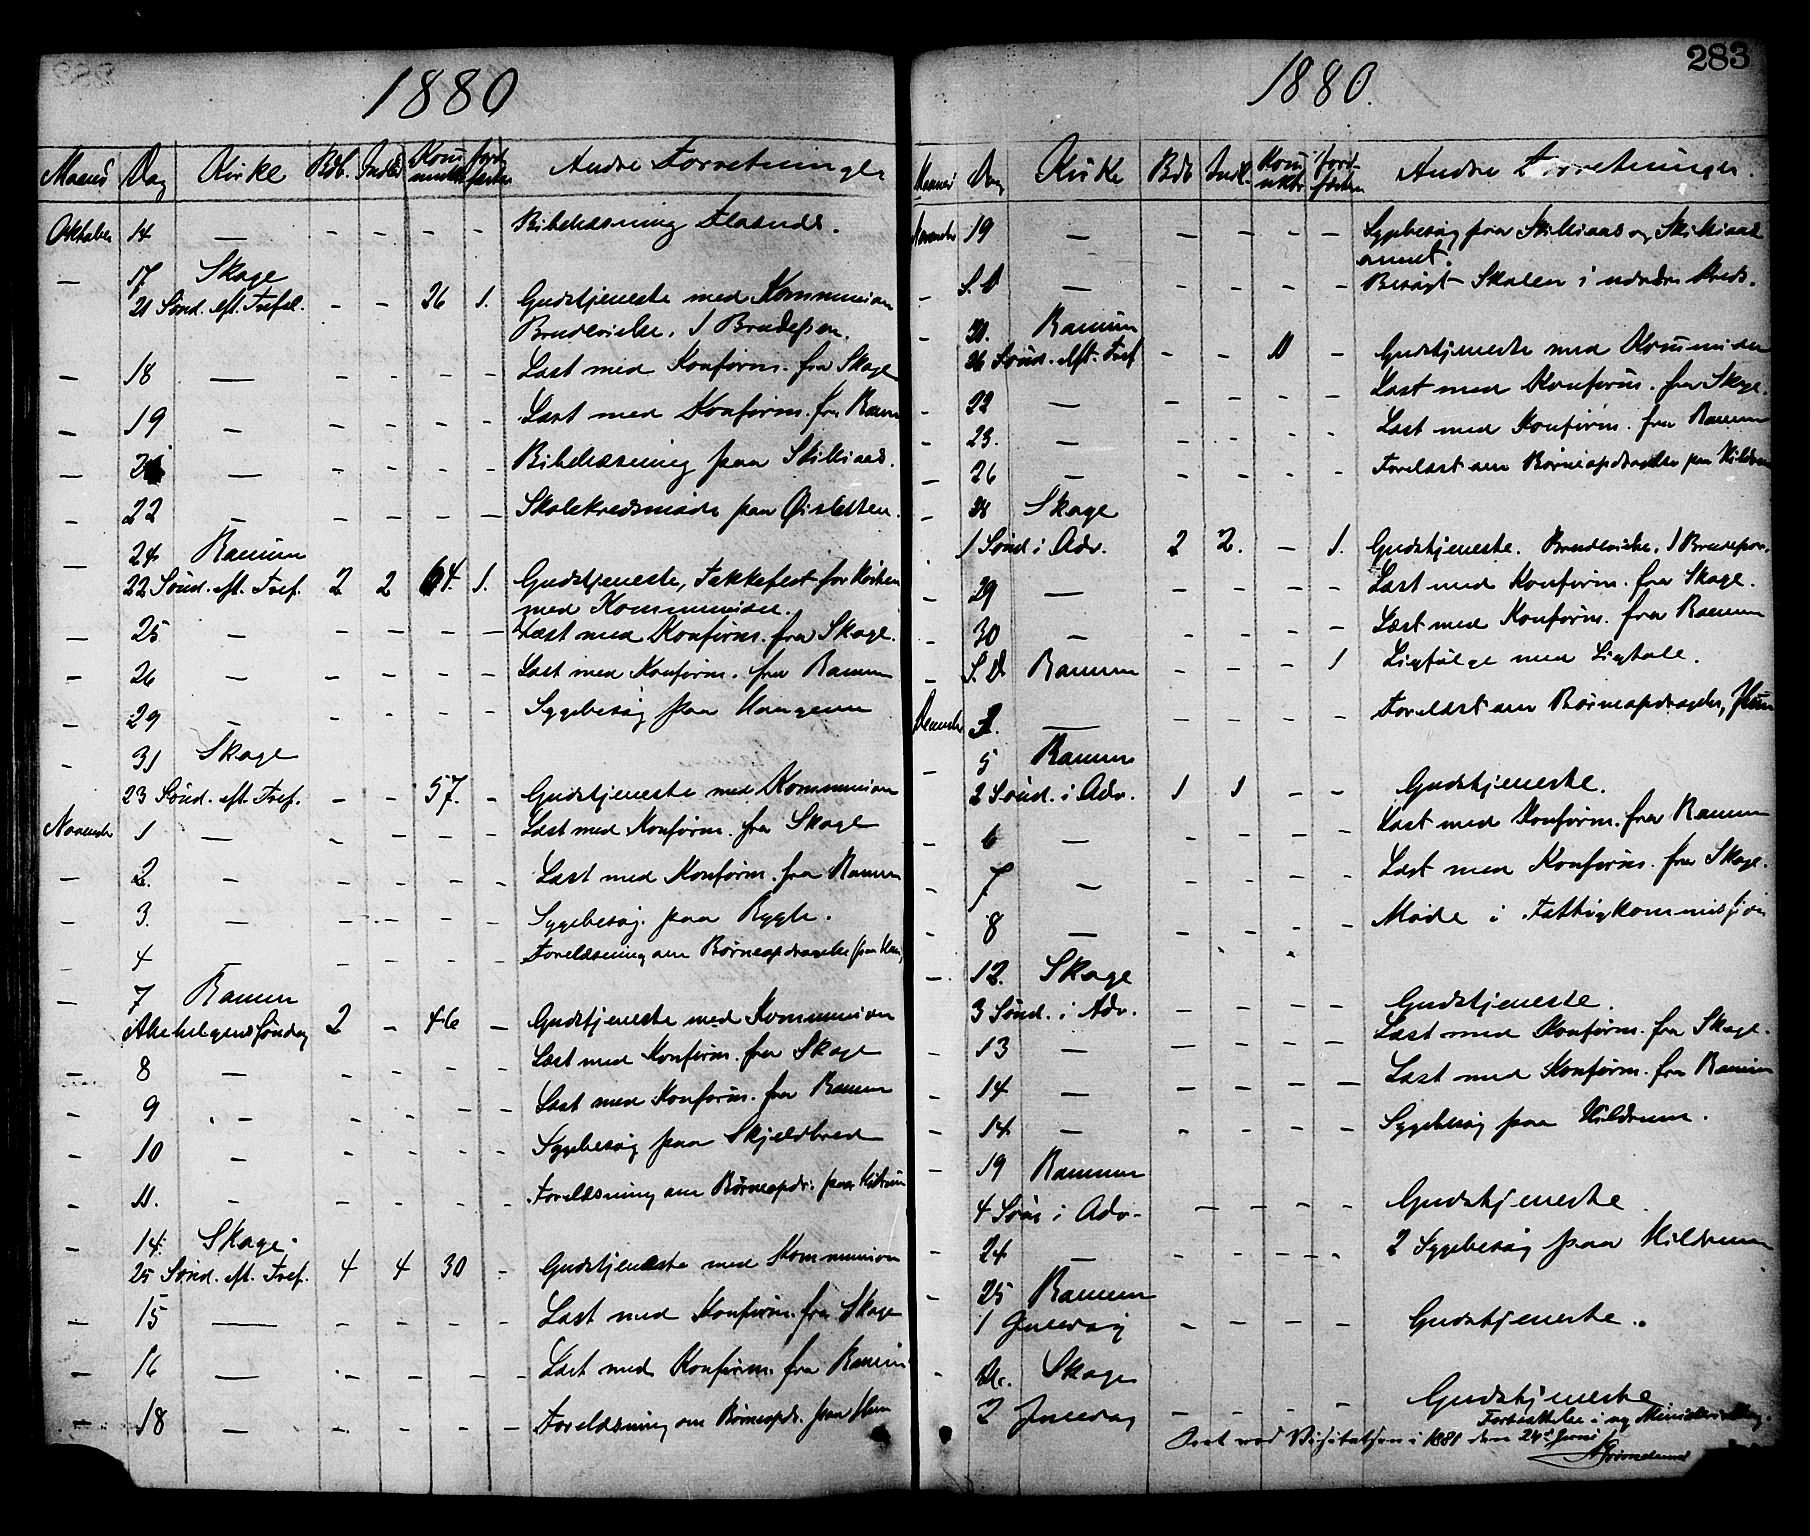 1880
Maaned Dag Kirke Bdb. Indl. Kommunik. Jordfæstn. Andre Forretninger
Oktober 14 — - - - - Bibellæsning
— 17 Skage
21 Sønd. eft. Tref. - - 26 1. Gudstjeneste med Kommunion
Brudevielse, 1 Brudepar.
— 18 — - - - - Læst med Konfirm. fra Skage
— 19 — - - - - Læst med Konfirm. fra Ranum
— — - - - - Bibellæsning paa Skilliaas.
— 22 — - - - - Skolekredsmøde paa Øisletten.
— 24 Ranum
22 Sønd. eft. Tref. 2 2 64. 1. Gudstjeneste, Takkefest for Høsten
med Kommunion.
— 25 — - - - - Læst med Konfirm. fra Skage.
— 26 — - - - - Læst med Konfirm. fra Ranum
— 29 — - - - - Sygebesøg paa
— 31 Skage
23 Sønd. eft. Tref. - - 57. - Gudstjeneste med Kommunion
November 1 — - - - - Læst med Konfirm. fra Skage
— 2. — - - - - Læst med Konfirm. fra Ranum
— 3. — - - - - Sygebesøg paa Rygh.
— 4 — - - - - Forelæsning om Børneopdragelse paa
— 7 Ranum
Allehelgens Søndag 2 - 46 - Gudstjeneste med Kommunion
— 8 — - - - - Læst med Konfirm. fra Skage
— 9 — - - - - Læst med Konfirm. fra Ranum
— 10 — - - - - Sygebesøg paa Skjeldbred
— 11. — - - - - Forelæsning om Børneopdr. paa Hildrum
— 14. Skage.
25 Sønd. eft. Tref. 4 4 30 - Gudstjeneste med Kommunion
— 15 — - - - - Læst med Konfirm. fra Skage
— 16 — - - - - Læst med Konfirm. fra Ranum
— 18 — - - - - Forelæsning om Børneopdr. paa Hun
283
1880.
Maaned Dag Kirke Bdb Indl. Kommunikr. Jordfæstn. Andre Forretninger.
November 19 — - - - - Sygebesøg paa Skilliaas og Skilliaas
annet.
- S. D — - - - - Besøgt Skolen i Kreds.
- 21. Ranum
26 Sønd. eft. Tref - - 11 - Gudstjeneste med Kommunion
- 22 — - - - - Læst med Konfirm. fra Skage.
- 23. — - - - - Læst med Konfirm. fra Ranum
- 26 — - - - - Forelæst om Børneopdragelse paa Hildrum
- 28 Skage
1 Sønd i Adv. 2 2. - 1. Gudstjeneste. Brudevielse, 1 Brudepar.
- 29 — - - - - Læst med Konfirm. fra Skage.
- 30 — - - - - Læst med Konfirm. fra Ranum
- S. D Ranum - - - 1 Ligfølge med Ligtale.
December 2. — - - - - Forelæst om Børneopdragelse,
- 5 Ranum
2 Sønd. i Adv. 1 1 - - Gudstjeneste.
- 6 — - - - - Læst med Konfirm. fra Ranum
- 7 — - - - - Læst med Konfirm. fra Skage.
- 8 — - - - - Møde i Fattigkommission
- 12. Skage
3 Sønd. i Adv. - - - - Gudstjeneste.
- 13 — - - - - Læst med Konfirm. fra Skage.
- 14 — - - - - Læst med Konfirm. fra Ranum
- 14 — - - - - Sygebesøg paa Hildrum.
- 19 Ranum
4 Søn i Adv. - - - - Gudstjeneste
- 24 — - - - - 2 Sygebesøg paa Hildrum
- 25 Ranum
1 Juledag - - - - Gudstjeneste.
- Skage
2 Juledag - - - - Gudstjeneste
Fortsættelse i ny Ministerialbog.
Seet ved Visitatsen i 1881 den 24de Juni